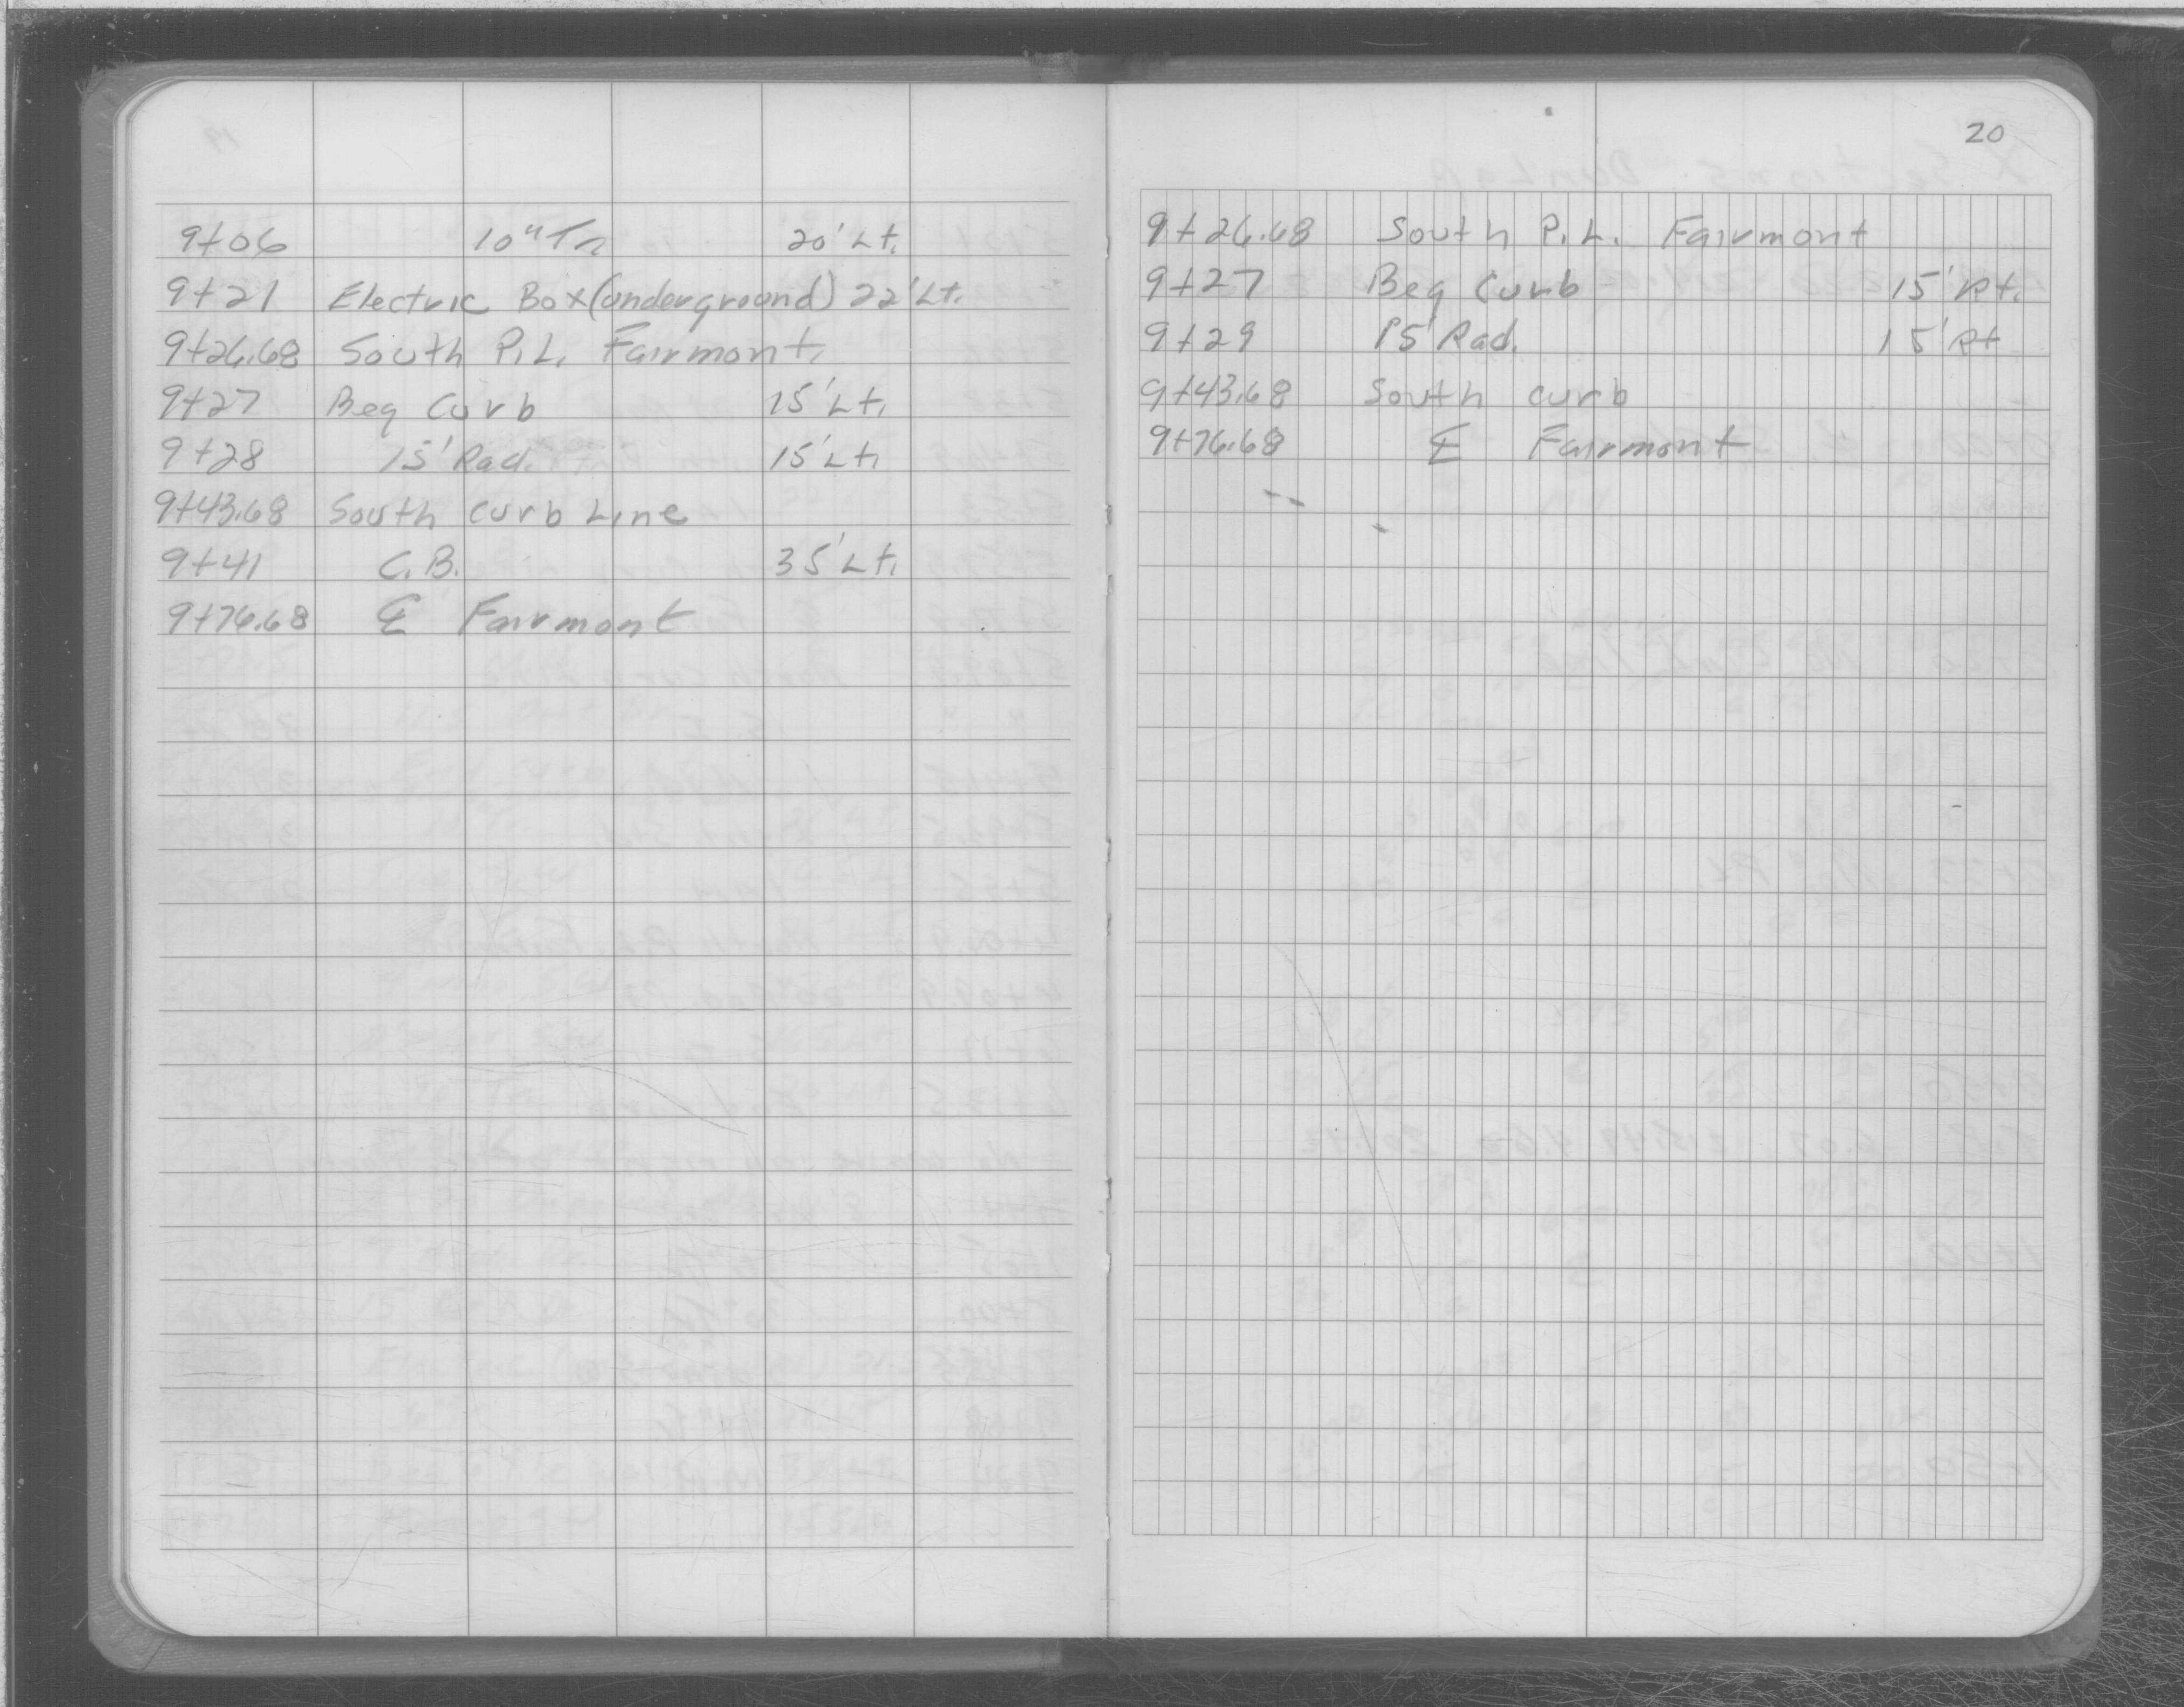 9+06 10" Tr 20' Lt.
9+21 Electric Box (underground) 22' Lt.
9+26.68 South P.L. Fairmont.
9+27 Beg Curb 15' Lt.
9+28 15' Rad. 15' Lt.
9+43.68 South Curb Line
9+41 C.B. 35' Lt.
9+76.68 ℄ Fairmont
20
9+26.68 South P.L. Fairmont
9+27 Beg Curb 15' Rt.
9+29 15' Rad. 15' Rt
9+43.68 South curb
9+76.68 ℄ Fairmont